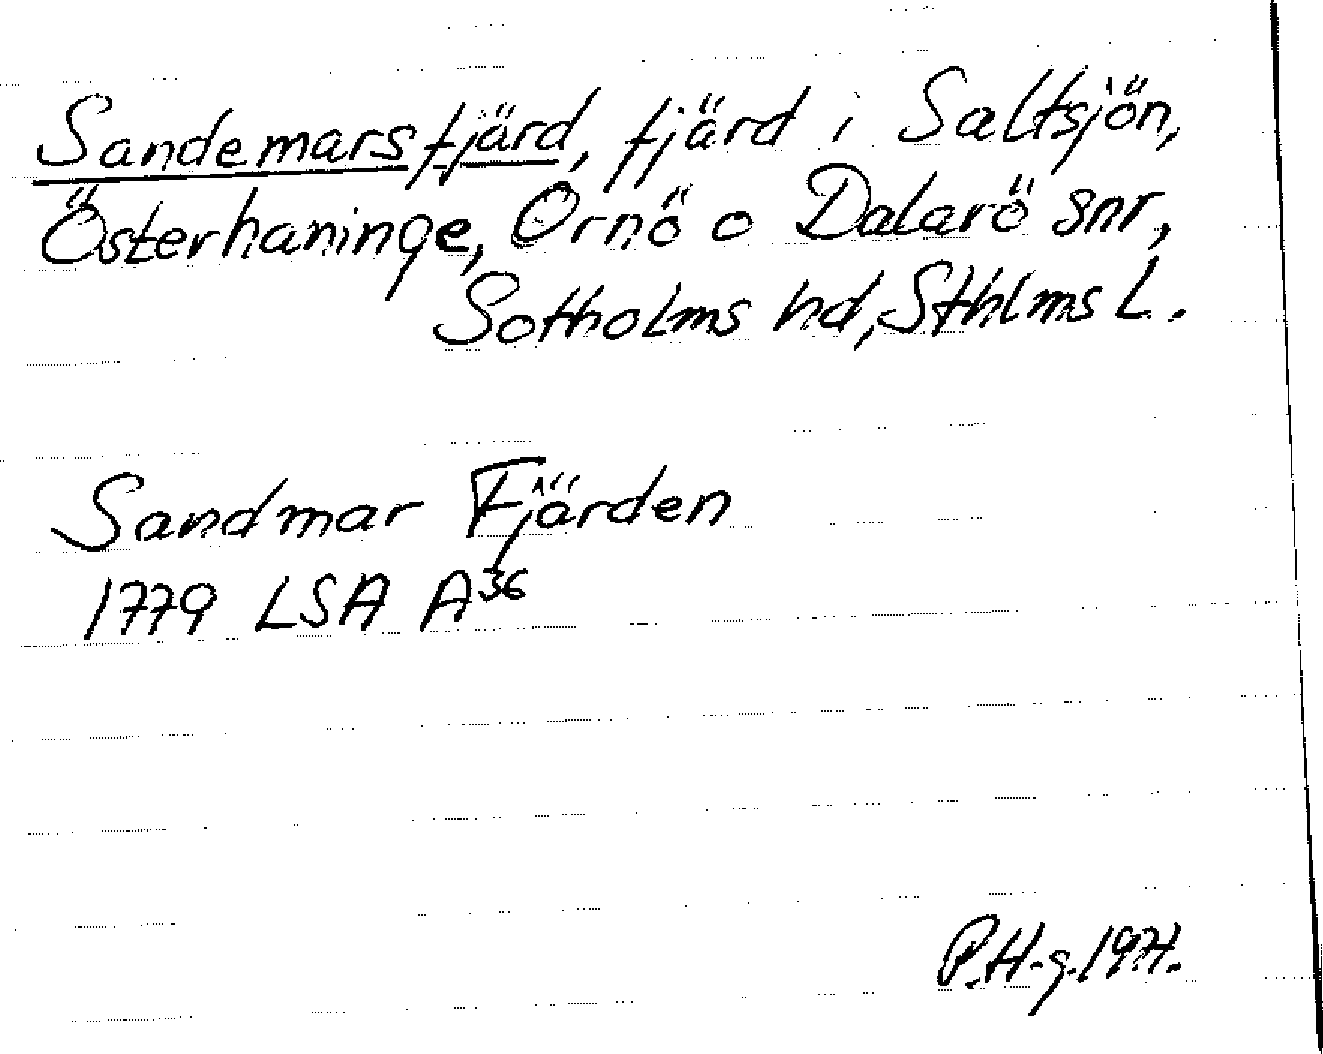 Sandemarsfjärd, fjärd i Saltsjön,
Österhaninge, Ornö o Dalarö snr,
Sotholms hd, Sthlms L.
Sandmar Fjärden
1779 LSA A36
P.H-g.1971.